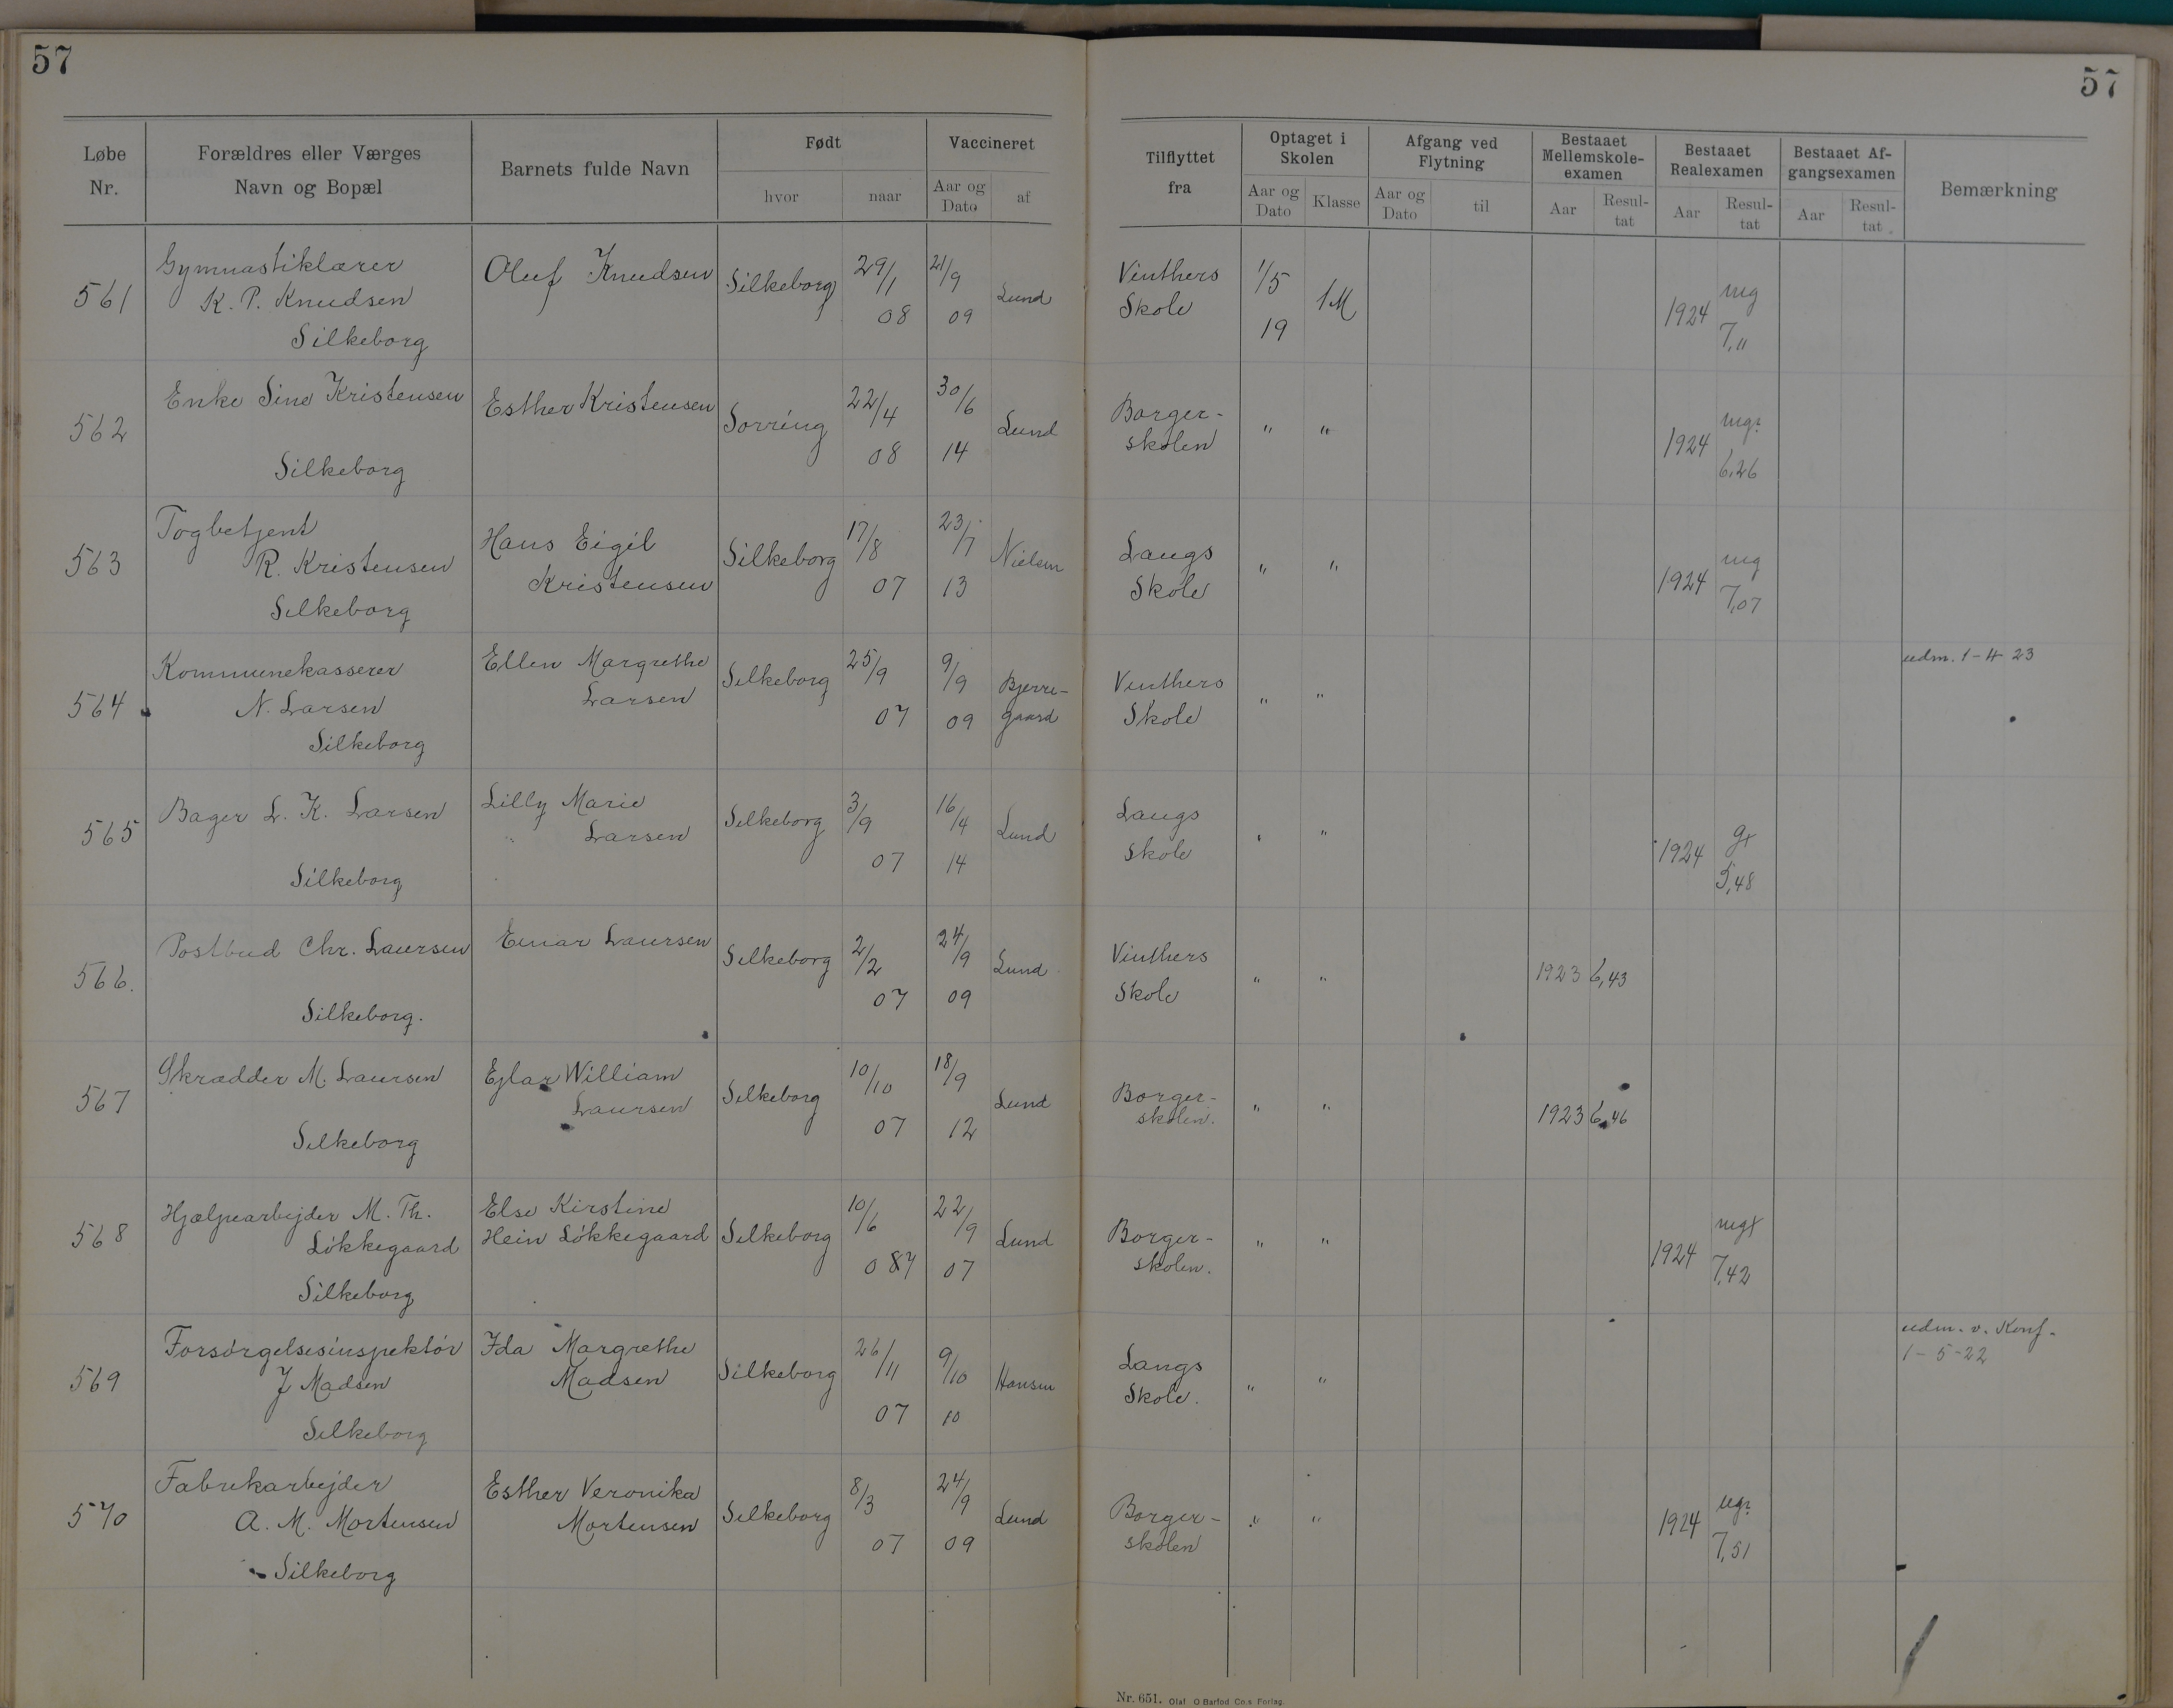 57
57
Løbe Nr.
Forældres eller Værges Navn og Bopæl
Barnets fulde Navn
Født
hvor
naar
Vaccineret
Aar og Dato
af
Tilflyttet fra
Optaget i Skolen
Aar og Dato
Klasse
Afgang ved Flytning
Aar og Dato
til
Bestaaet Mellemskole-examen
Aar
Resul-tat
Bestaaet Realexamen
Aar
Resul-tat
Bestaaet Af-gangsexamen
Aar
Resul-tat
Bemærkning
561 Gymnastiklærer K. P. Knudsen Silkeborg Oluf Knudsen Silkeborg 29/1 08 21/9 09 Lund Vinthers Skole 1/5 19 1M 1924 mg 7,"
562 Enke Sine Kristensen Silkeborg Esther Kristensen Sorring 22/4 08 30/6 14 Lund Borger-skolen " " 1924 mg÷ 6,26
563 Togbetjent R. Kristensen Silkeborg Hans Eigil Kristensen Silkeborg 17/8 07 23/7 13 Nielsen Langs Skole " " 1924 mg 7,07
564 Kommunekasserer N. Larsen Silkeborg Ellen Margrethe Larsen Silkeborg 25/9 07 9/9 09 Bjerre-gaard Vinthers Skole " " udm. 1-4 23
565 Bager L. K. Larsen Silkeborg Lilly Marie Larsen Silkeborg 3/9 07 16/4 14 Lund Langs Skole " " 1924 g+ 5,48
566. Postbud Chr. Laursen Silkeborg. Einar Laursen Silkeborg 2/2 07 24/9 09 Lund Vinthers Skole " " 1923 6,43
567 Skrædder M. Laursen Silkeborg Ejlar William Laursen Silkeborg 10/10 07 18/9 12 Lund Borger-skolen. " " 1923 6,46
568 Hjælpearbejder M. Th. Løkkegaard Silkeborg Else Kirstine Hein Løkkegaard Silkeborg 10/6 087 22/9 07 Lund Borger-skolen. " " 1924 mg+ 7,42
569 Forsørgelsesinspektør J Madsen Silkeborg Ida Margrethe Madsen Silkeborg 26/11 07 9/10 10 Hansen Langs Skole. " " udm. v. Konf. 1-5-22
570 Fabrikarbejder A. M. Mortensen Silkeborg Esther Veronika Mortensen Silkeborg 8/3 07 24/9 09 Lund Borger-skolen " " 1924 ug÷ 7,51
Nr. 651. Olaf O Barfod Co.s Forlag.